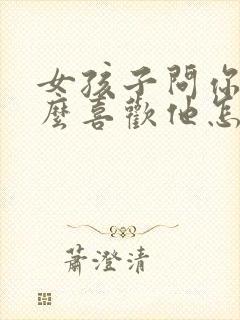 女孩子問你
麼喜歡他怎
蕭澄清